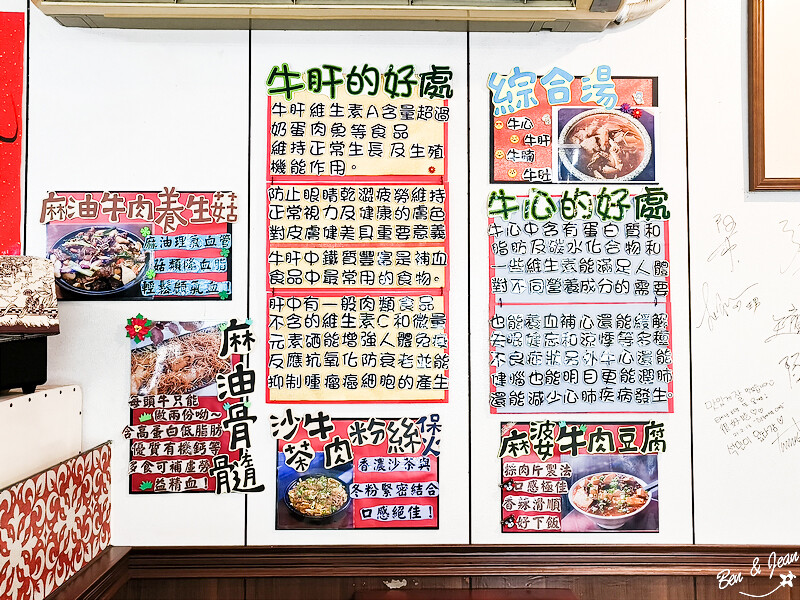 麻油牛肉養生菇
麻油理氣血管
菇類降血脂
輕鬆顧氣血
麻油骨髓
每頭牛只能
做兩份呦~
含高蛋白低脂肪
優質有機鈣等
多食可補虛勞
益精血!
牛肝的好處
牛肝維生素A含量超過
奶蛋肉魚等食品
維持正常生長及生殖
機能作用。
防止眼睛乾澀疲勞維持
正常視力及健康的膚色
對皮膚健美具重要意義
牛肝中鐵質豐富是補血
食品中最常用的食物。
肝中有一般肉類食品
不含的維生素C和微量
元素硒能增強人體免疫
反應抗氧化防衰老並能
抑制腫瘤癌細胞的產生
沙茶牛肉粉絲煲
香濃沙茶與
冬粉緊密結合
口感絕佳!
綜合湯
牛心
牛肝
牛腩
牛肚
牛心的好處
牛心中含有蛋白質和
脂肪及碳水化合物和
一些維生素能滿足人體
對不同營養成分的需要
也能養血補心還能緩解
失眠健忘和驚悸等多種
不良症狀另外牛心還能
健腦也能明目更能潤肺
還能減少心肺疾病發生。
麻婆牛肉豆腐
採肉片製法
口感極佳
香辣滑順
好下飯
Ben & Jean